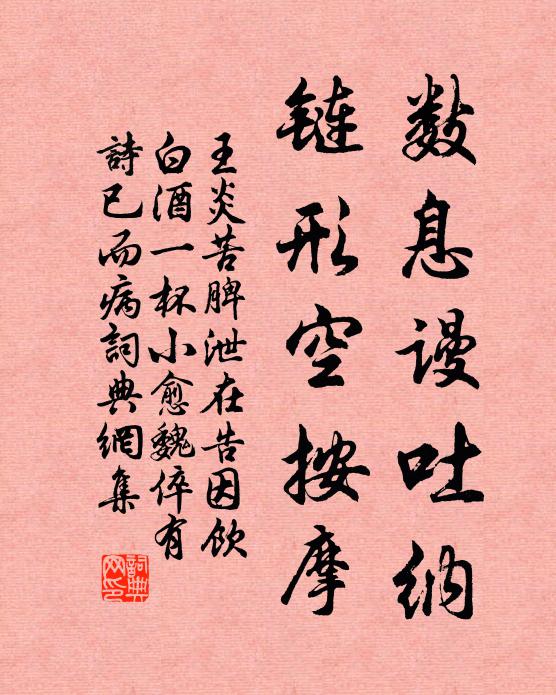 數息謾吐納
鏈形空按摩
王炎苦脾泄在告因飲
白酒一杯小愈魏倅有
詩已而病詞典網集
詞典網印